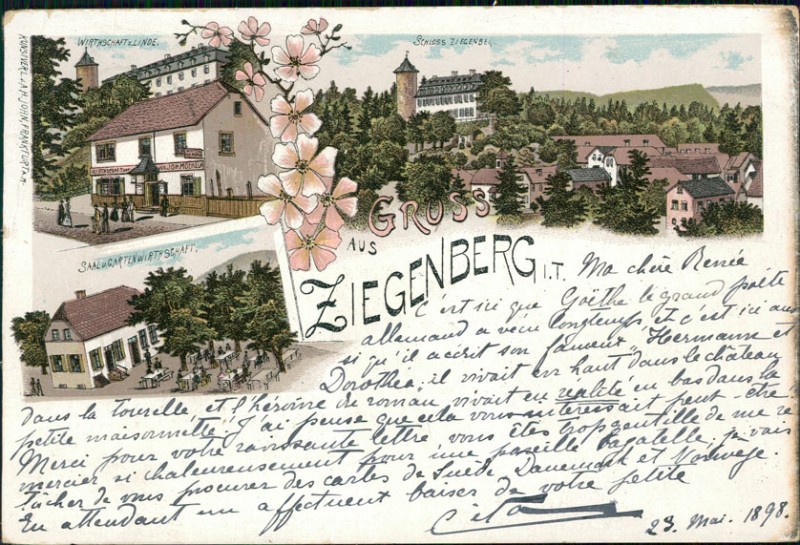 WIRTHSCHAFT Z. LINDE.
SCHLOSS ZIEGENBE
KUNSTVERL. v. A. H. JOHN, FRANKFURT a. M.
GRUSS
AUS
ZIEGENBERG I.T.
SAAL U. GARTENWIRTHSCHAFT.
Ma chère Renée
C'est ici que Goëthe le grand poëte
allemand a vécu longtemps et c'est ici aus
si qu'il a écrit son fameux "Hermann et
Dorothéa, il vivait en haut dans le château
dans la tourelle, et l'héroine du roman, vivait en réalité en bas dans la
petite maisonnette. J'ai pensé que cela vous intéressait peut-être.
Merci pour votre ravissante lettre, vous êtes trop gentille de me re
mercier si chaleureusement pour une pareille bagatelle, je vais
tâcher de vous procurer des cartes de Suède, Danemark et Norwège.
En attendant un affectueux baiser de votre petite
Cito
23. Mai. 1898.